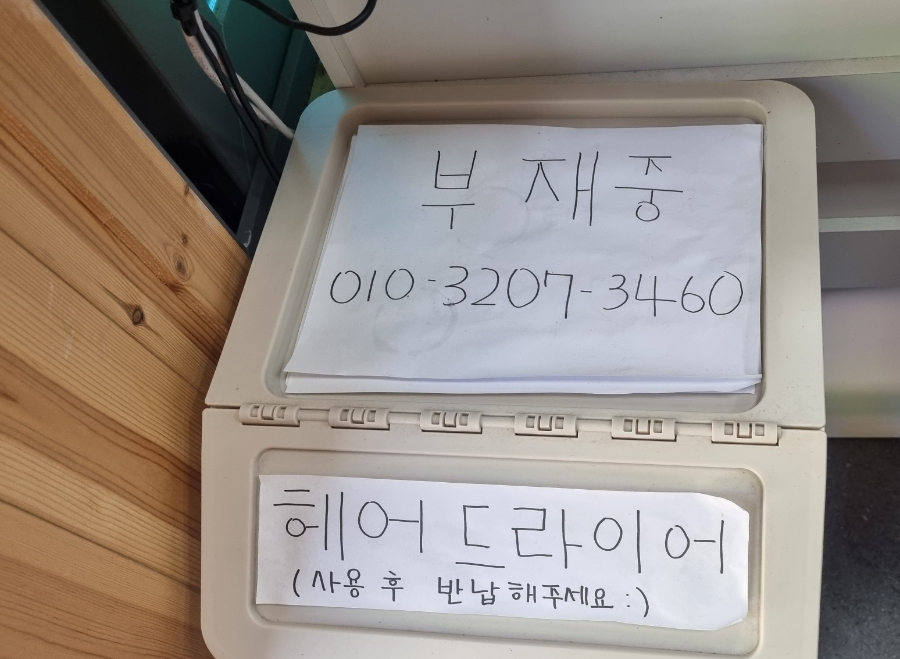 부재중
010-3207-3460
헤어드라이어
(사용 후 반납해주세요:)